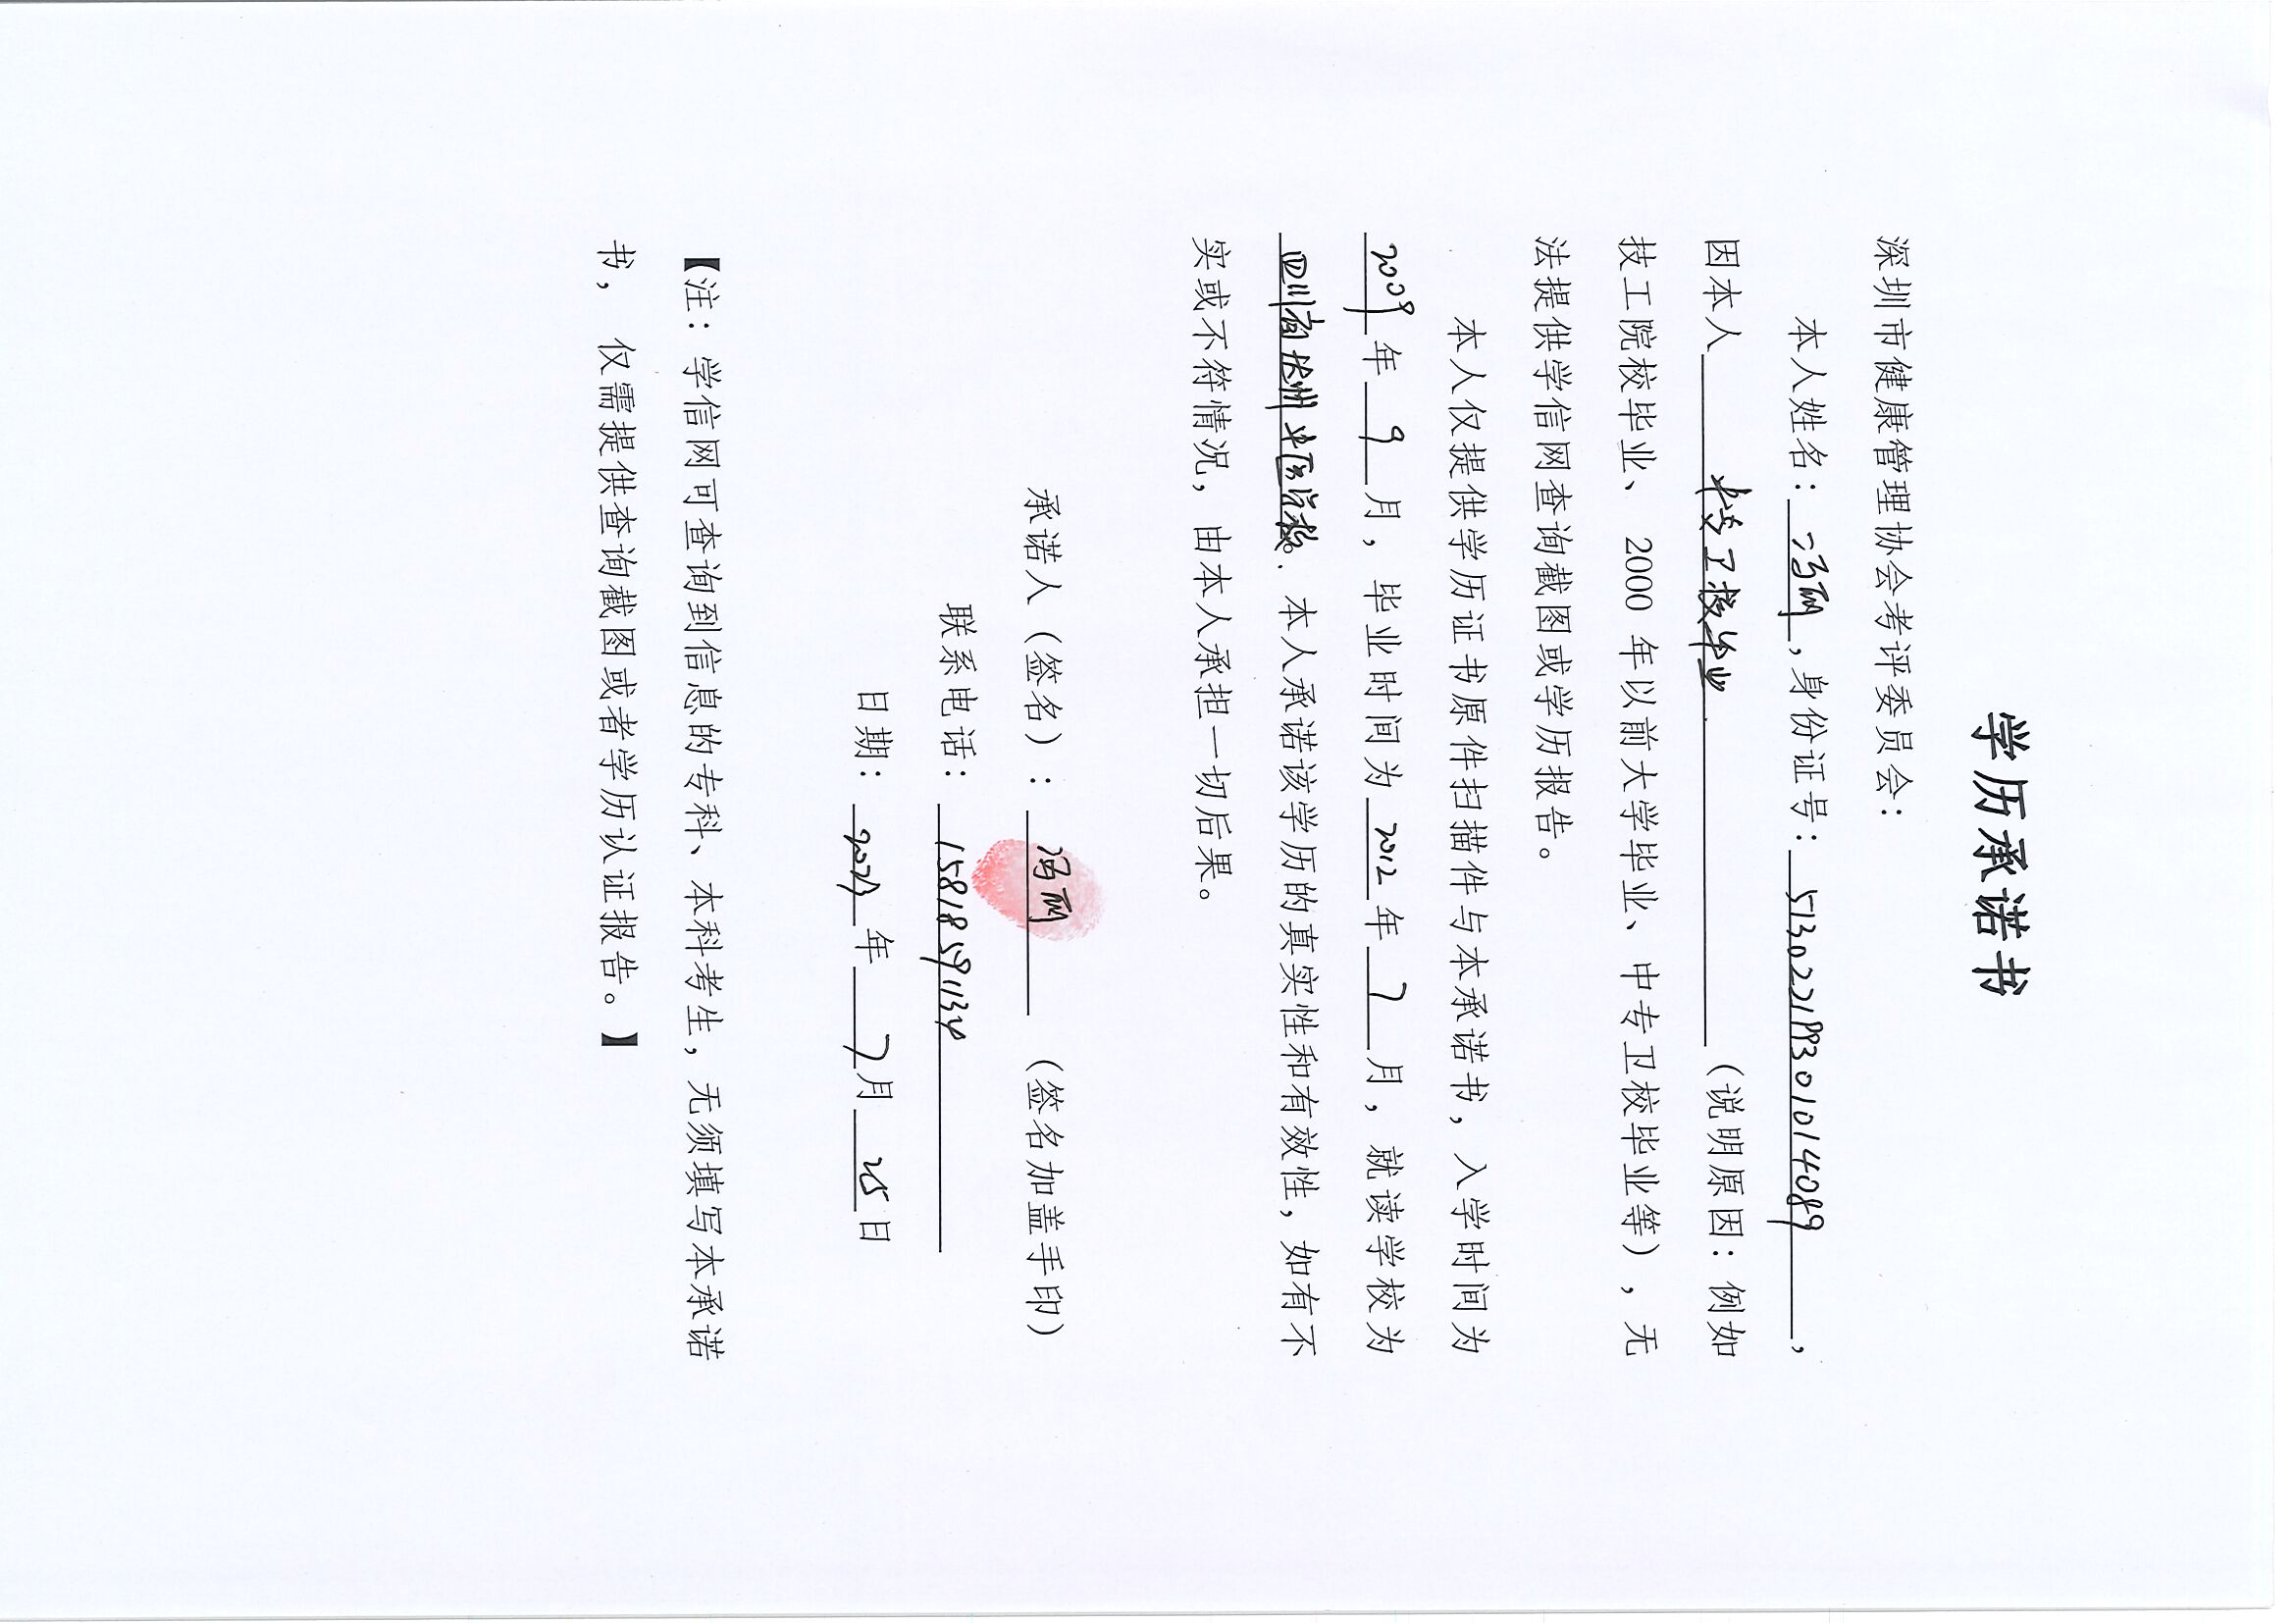 学历承诺书
深圳市健康管理协会考评委员会：
本人姓名：冯丽，身份证号：513022199301014089，
因本人中专卫校毕业（说明原因：例如
技工院校毕业、2000 年以前大学毕业、中专卫校毕业等），无
法提供学信网查询截图或学历报告。
本人仅提供学历证书原件扫描件与本承诺书，入学时间为
2009年9月，毕业时间为2012年7月，就读学校为
四川省达州中医学校。本人承诺该学历的真实性和有效性，如有不
实或不符情况，由本人承担一切后果。
承诺人（签名）：冯丽（签名加盖手印）
联系电话：15818591134
日期：2023年7月25日
【注：学信网可查询到信息的专科、本科考生，无须填写本承诺
书， 仅需提供查询截图或者学历认证报告。】